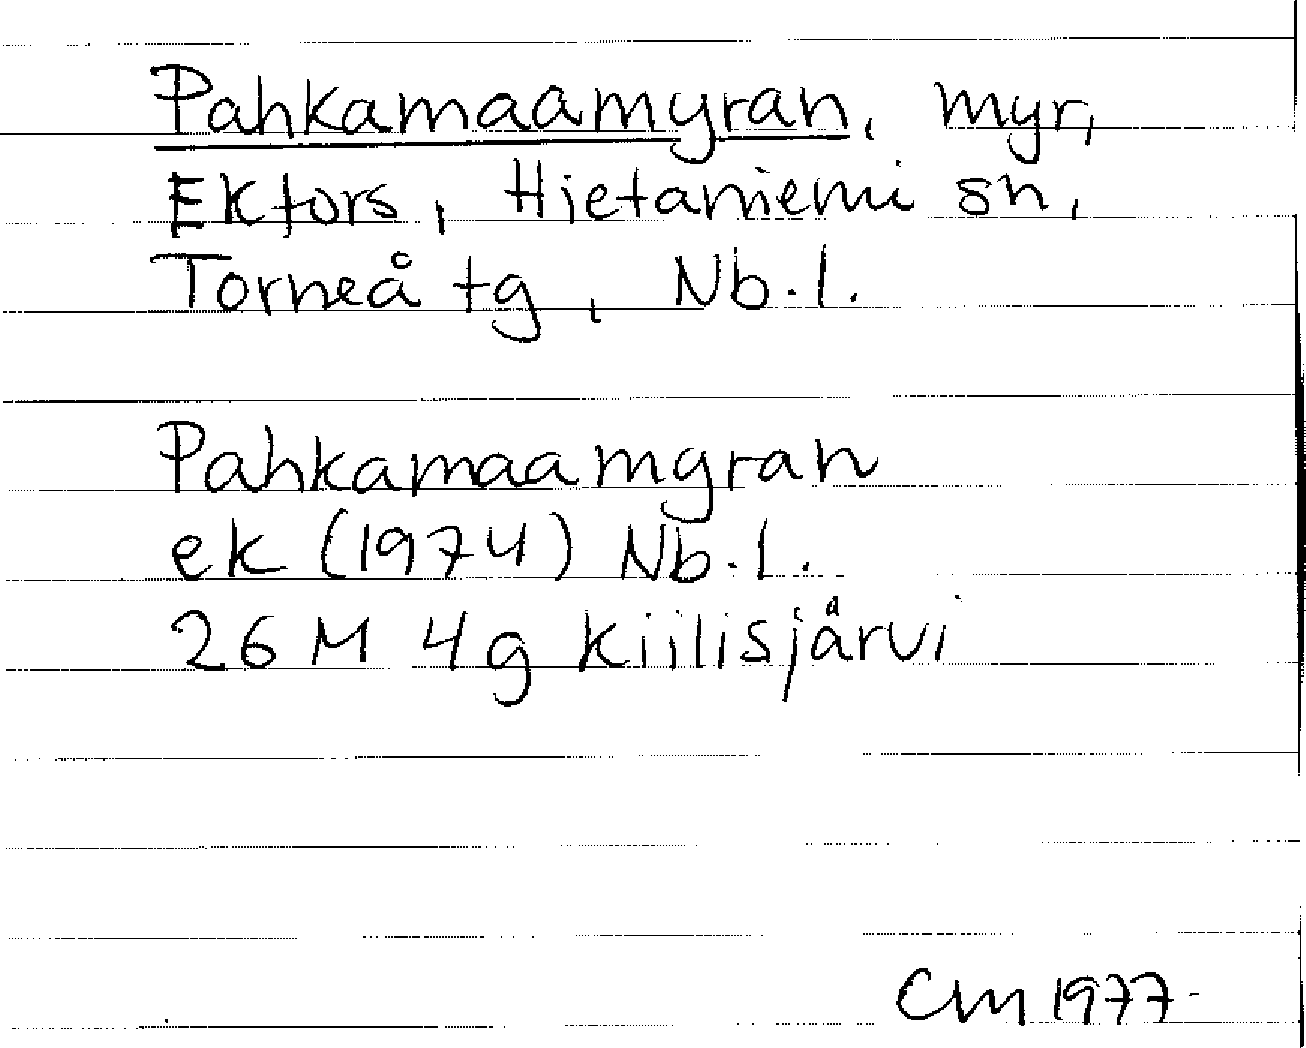 Pahkamaamyran, myr,
Ektors, Hietaniemi sn,
Torneå tg, Nb.l.
Pahkamaamyran
ek (1974) Nb.l.
26 M 4g Kiilisjärvi
CM 1977